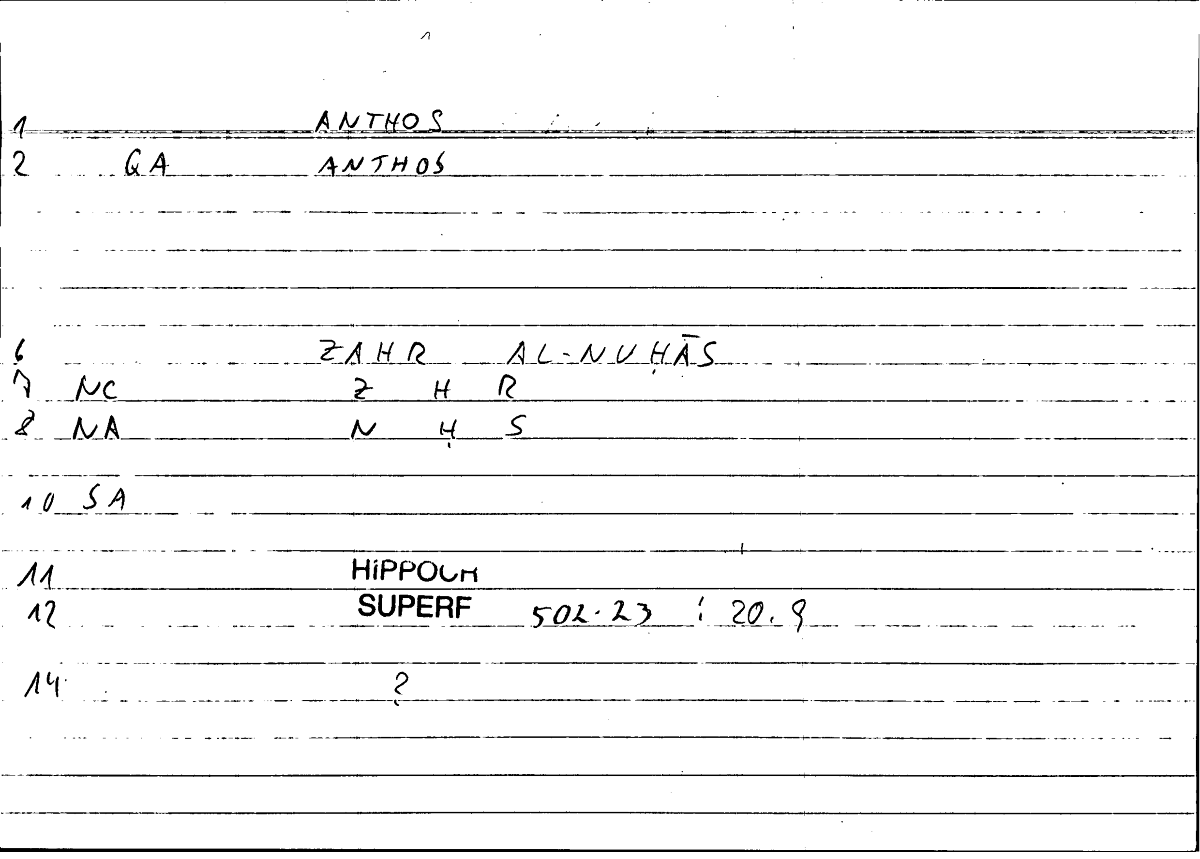 1 ANTHOS
2 GA ANTHOS
6 ZAHR AL-NUḤĀS
7 NC Z H R
8 NA N Ḥ S
10 SA
11 HiPPOCR
12 SUPERF 502.23 : 20.9
14 ?